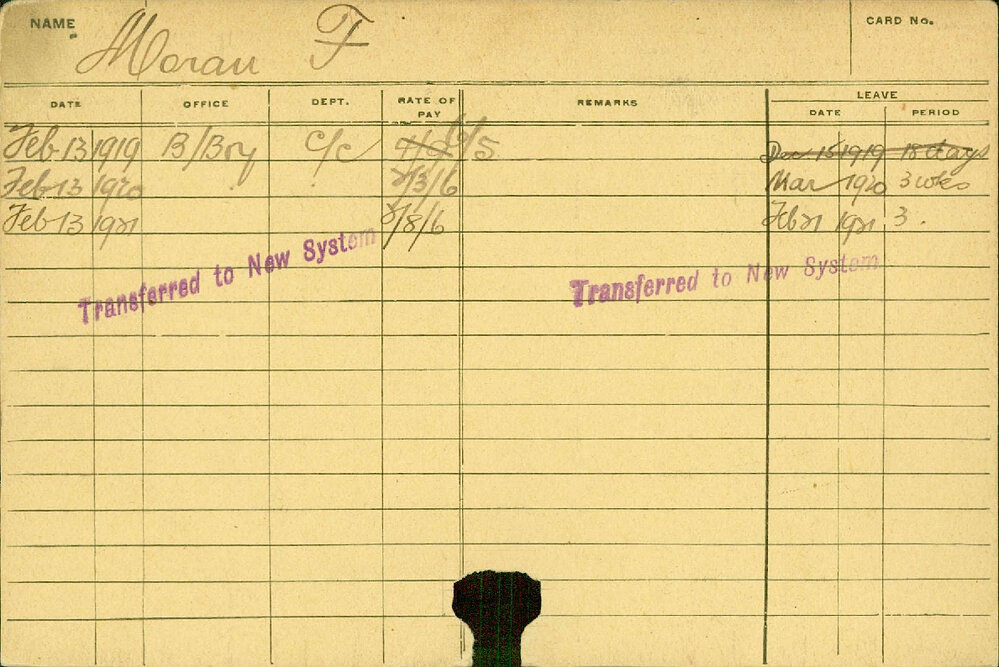 NAME Moran F CARD No.
DATE OFFICE DEPT. RATE OF PAY REMARKS LEAVE
DATE PERIOD
Feb 13 1919 B/Boy C/c 6/5 Dec 15 1919 18 days
Feb 13 1920 7/3/6 Mar 1920 3 wks
Feb 13 1921 7/8/6 Feb 21 1921 3 .
Transferred to New System Transferred to New System